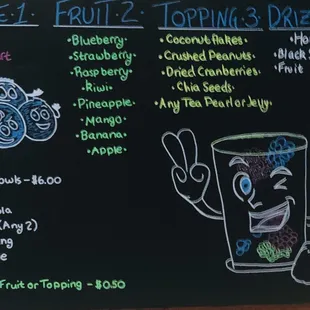 E·1 FRUIT·2· TOPPING·3· DRIZ
Blueberry·
Strawberry·
Raspberry·
Kiwi·
Pineapple·
Mango·
Banana·
Apple·
Coconut flakes·
Crushed Peanuts·
Dried Cranberries·
Chia Seeds·
Any Tea Pearl or Jelly·
Ho
Black S
Fruit
rt
owls - $6.00
la
(Any 2)
ng
e
Fruit or Topping - $0.50